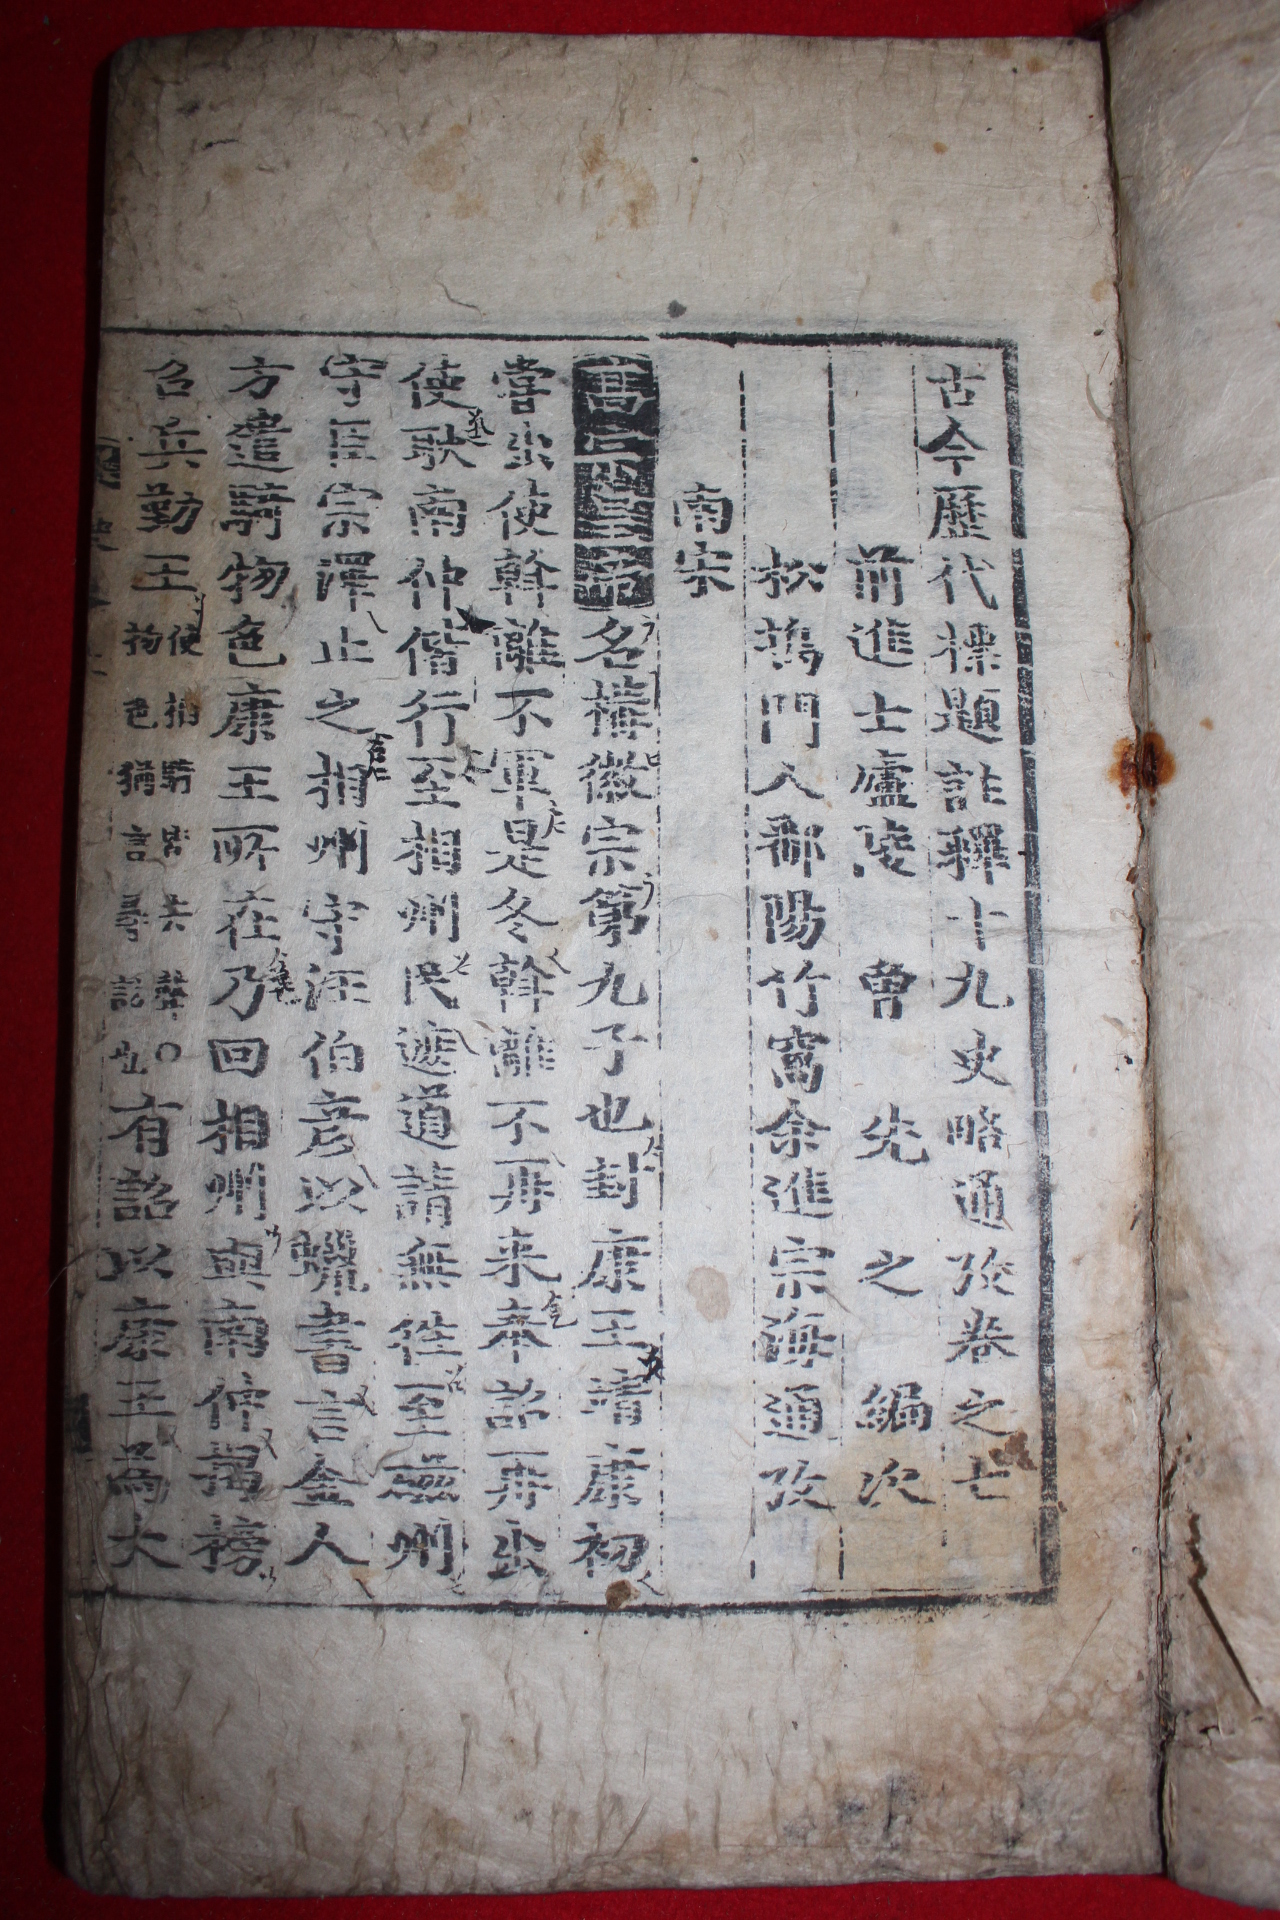 古今歷代標題註釋十九史略通攷卷之七
前進士廬陵 曾 先 之 編次
松塢門人鄱陽竹窩余進宗海通攷
南宋
高宗皇帝名構徽宗第九子也封康王靖康初
嘗出使斡離不軍是冬斡離不再来奉詔再出
使耿南仲偕行至相州民遮道請無往至磁州
守臣宗澤止之相州守汪伯彦以蠟書言金人
方遣騎物色康王所在乃回相州與南仲揭榜
召兵勤王
物色猶言
有詔以康王爲大